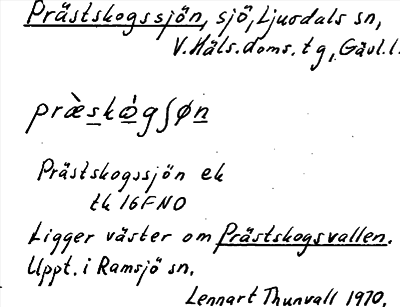 Prästskogssjön, sjö, Ljusdals sn,
V. Häls. doms. tg, Gävl. l.
præ̀skǿgʃøn
Prästskogssjön ek
tk 16F NO
Ligger väster om Prästskogsvallen.
Uppt. i Ramsjö sn.
Lennart Thunvall 1970.